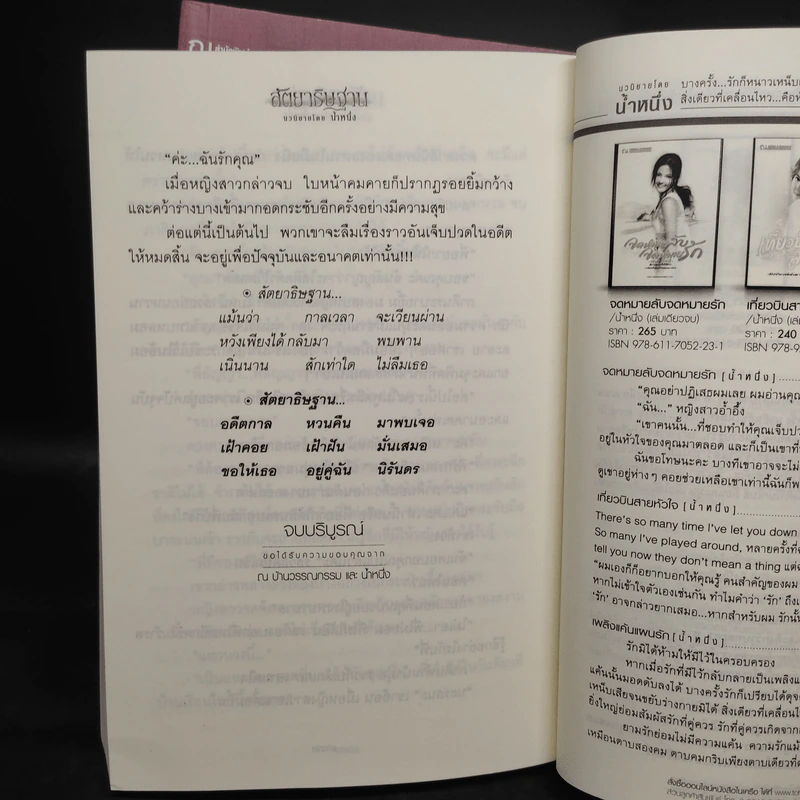 สัตยาธิษฐาน
นวนิยายโดย น้ำหนึ่ง
“ค่ะ...ฉันรักคุณ”
เมื่อหญิงสาวกล่าวจบ ใบหน้าคมคายก็ปรากฏรอยยิ้มกว้าง
และคว้าร่างบางเข้ามากอดกระชับอีกครั้งอย่างมีความสุข
ต่อแต่นี้เป็นต้นไป พวกเขาจะลืมเรื่องราวอันเจ็บปวดในอดีต
ให้หมดสิ้น จะอยู่เพื่อปัจจุบันและอนาคตเท่านั้น!!!
สัตยาธิษฐาน...
แม้นว่า กาลเวลา จะเวียนผ่าน
หวังเพียงได้ กลับมา พบพาน
เนิ่นนาน สักเท่าใด ไม่ลืมเธอ
สัตยาธิษฐาน...
อดีตกาล หวนคืน มาพบเจอ
เฝ้าคอย เฝ้าฝัน มั่นเสมอ
ขอให้เธอ อยู่คู่ฉัน นิรันดร
จบบริบูรณ์
ขอได้รับความขอบคุณจาก
ณ บ้านวรรณกรรม และ น้ำหนึ่ง
นวนิยายโดย
น้ำหนึ่ง
บางครั้ง...รักก็หนาวเหน็บ
สิ่งเดียวที่เคลื่อนไหว...คือ
จดหมายลับจดหมายรัก
/น้ำหนึ่ง (เล่มเดียวจบ)
ราคา : 265 บาท
ISBN 978-611-7052-23-1
เที่ยวบินสาย
/น้ำหนึ่ง
ราคา : 240
ISBN 978-9
จดหมายลับจดหมายรัก [น้ำหนึ่ง]
“คุณอย่าปฏิเสธผมเลย ผมอ่านคุณ
“ฉัน...” หญิงสาวอ้ำอึ้ง
“เขาคนนั้น...ที่ชอบทำให้คุณเจ็บปว
อยู่ในหัวใจของคุณมาตลอด และก็เป็นเขาที่
ฉันขอโทษนะคะ บางทีเขาอาจจะไม่
ดูเขาอยู่ห่างๆ คอยช่วยเหลือเขาเท่านี้ฉันก็พ
เที่ยวบินสายหัวใจ [น้ำหนึ่ง]
There's so many time I've let you down
So many I've played around, หลายครั้งที่
tell you now they don't mean a thing แต่
“ผมเองก็ก็อยากบอกให้คุณรู้ คนสำคัญของผม
หากไม่เข้าใจตัวเองเช่นกัน ทำไมคำว่า ‘รัก’ ถึง
‘รัก’ อาจกล่าวยากเสมอ...หากสำหรับผม รักนั้น
เพลิงแค้นแผนรัก [น้ำหนึ่ง]
รักมิได้ห้ามให้มีไว้ในครอบครอง
หากเมื่อรักที่มีไว้กลับกลายเป็นเพลิงแ
แค้นนั้นมอดดับลงได้ บางครั้งรักก็เปรียบได้ดุจ
เหน็บเสียจนขยับร่างกายมิได้ สิ่งเดียวที่เคลื่อนไห
ยิ่งใหญ่ย่อมสัมผัสรักที่คู่ควร รักที่คู่ควรเกิดจาก
ยามรักย่อมไม่มีความแค้น ความรักแม้
เหมือนดาบสองคม ดาบคมกริบเพียงดาบเดียวที่
สั่งซื้อออนไลน์หนังสือในเครือ ได้ที่ www.